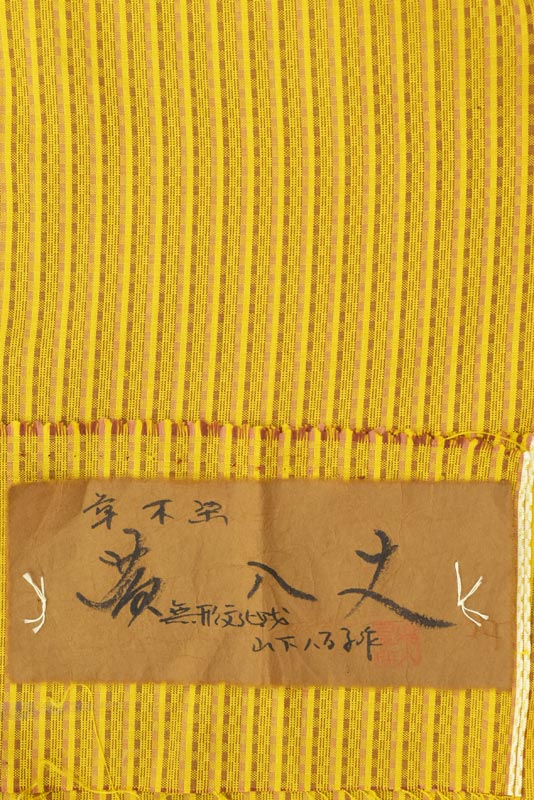 草木染
黄八丈
無形文化財
山下八百子作